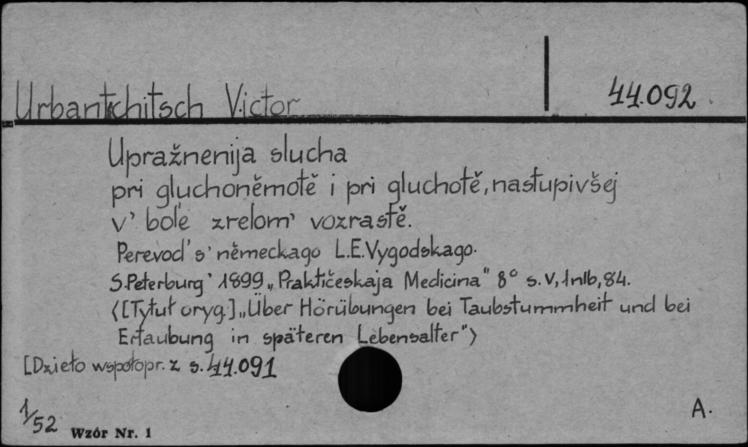 Urbantschitsch Victor 44.092.
Upražnenija slucha
pri gluchoněmotě i pri gluchotě, nastupivšej
v' bol'e zrelom' vozrastě.
Perevod' s' německago L.E.Vygodskago.
S.Peterburg' 1899 „Praktičeskaja Medicina" 8° s. V, 1nlb, 84.
⟨[Tytuł oryg.] „Über Hörübungen bei Taubstummheit und bei
Ertaubung in späteren Lebensalter"⟩
[Dzieło wspołopr. z s. 44.091
1/52 Wzór Nr. 1 A.